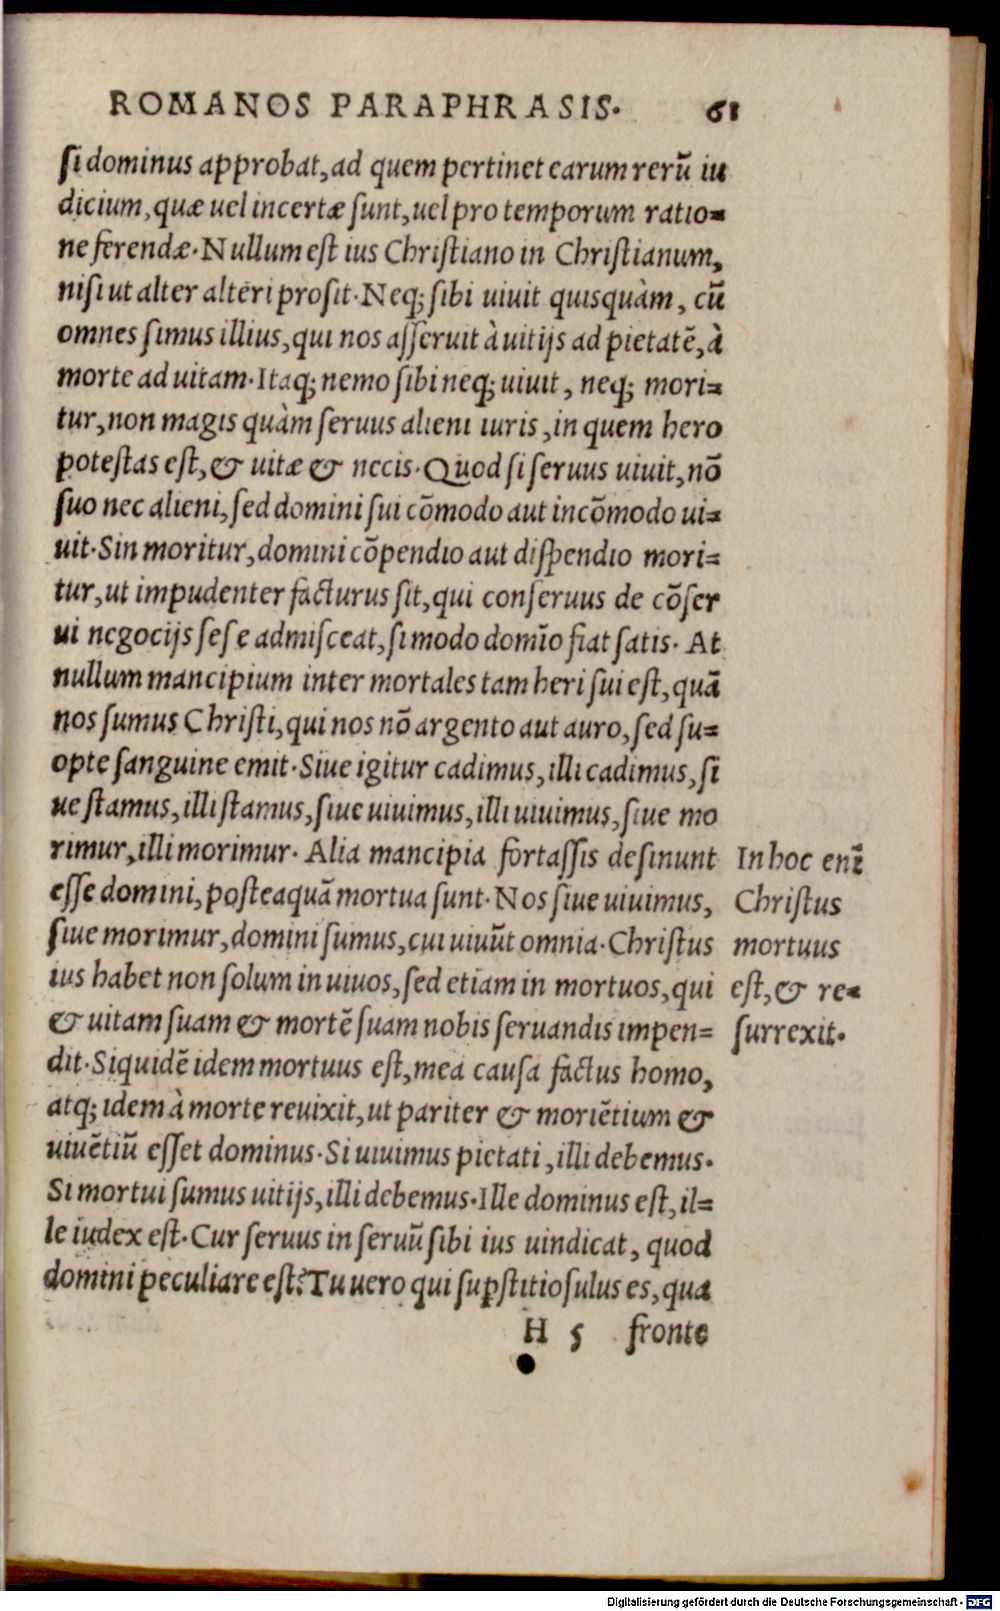 ROMANOS PARAPHRASIS. 61
si dominus approbat, ad quem pertinet earum rerũ iu
dicium, quæ uel incertæ sunt, uel pro temporum ratio=
ne ferendæ. Nullum est ius Christiano in Christianum,
nisi ut alter alteri prosit. Neq; sibi uiuit quisquàm, cũ
omnes simus illius, qui nos asseruit à uitijs ad pietatẽ, à
morte ad uitam. Itaq; nemo sibi neq; uiuit, neq; mori=
tur, non magis quàm seruus alieni iuris, in quem hero
potestas est, & uitæ & necis. Quod si seruus uiuit, nõ
suo nec alieni, sed domini sui cõmodo aut incõmodo ui=
uit. Sin moritur, domini cõpendio aut dispendio mori=
tur, ut impudenter facturus sit, qui conseruus de cõser
ui negocijs sese admisceat, si modo domĩo fiat satis. At
nullum mancipium inter mortales tam heri sui est, quã
nos sumus Christi, qui nos nõ argento aut auro, sed su=
opte sanguine emit. Siue igitur cadimus, illi cadimus, si
ue stamus, illi stamus, siue uiuimus, illi uiuimus, siue mo
rimur, illi morimur. Alia mancipia fortassis desinunt
esse domini, posteaquã mortua sunt. Nos siue uiuimus,
siue morimur, domini sumus, cui uiuũt omnia. Christus
ius habet non solum in uiuos, sed etiam in mortuos, qui
& uitam suam & mortẽ suam nobis seruandis impen=
dit. Siquidẽ idem mortuus est, mea causa factus homo,
atq; idem à morte reuixit, ut pariter & moriẽtium &
uiuẽtiũ esset dominus. Si uiuimus pietati, illi debemus.
Si mortui sumus uitijs, illi debemus. Ille dominus est, il=
le iudex est. Cur seruus in seruũ sibi ius uindicat, quod
domini peculiare est? Tu uero qui supstitiosulus es, qua
H 5 fronte
In hoc enĩ
Christus
mortuus
est, & re=
surrexit.
Digitalisierung gefördert durch die Deutsche Forschungsgemeinschaft - DFG